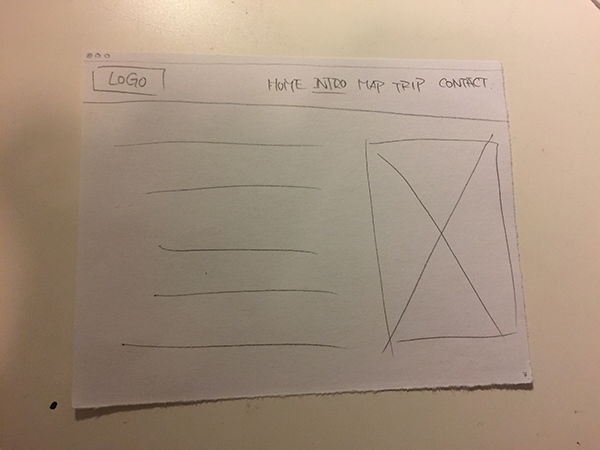 LOGO HOME INTRO MAP TRIP CONTACT